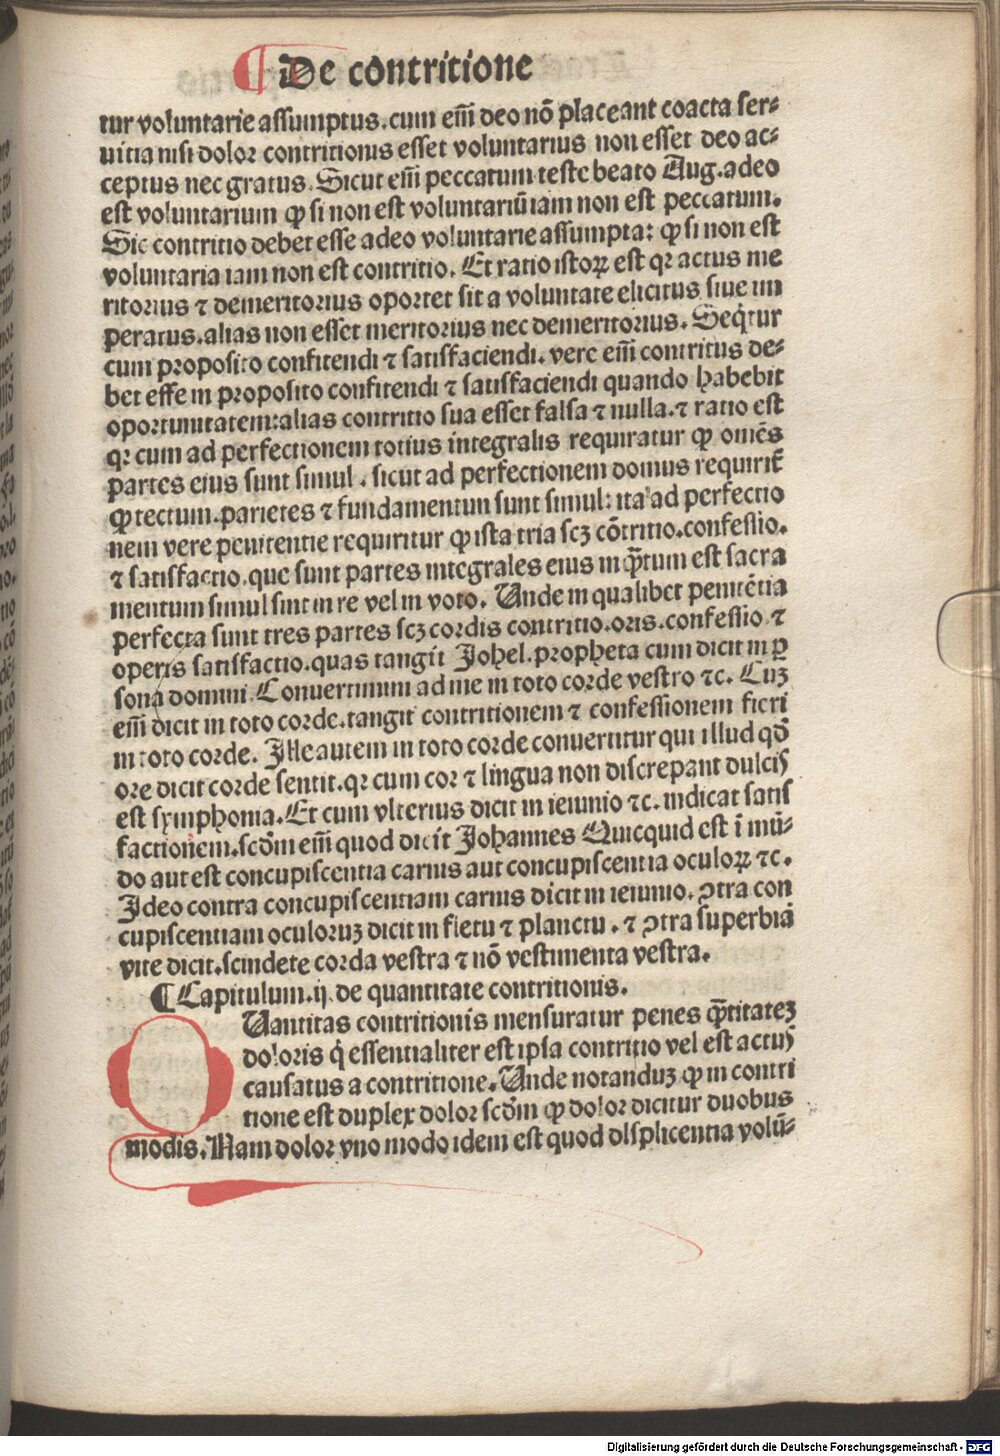 ¶ De contritione
tur voluntarie assumptus. cum em̄ deo nō placeant coacta ser⸗
uitia nisi dolor contritionis esset voluntarius non esset deo ac⸗
ceptus nec gratus. Sicut em̄ peccatum teste beato Aug. adeo
est voluntarium ꝙ si non est voluntariū iam non est peccatum.
Sic contritio debet esse adeo voluntarie assumpta: ꝙ si non est
voluntaria iam non est contritio. Et ratio istoꝝ est qꝛ actus me
ritorius ⁊ demeritorius oportet sit a voluntate elicitus siue im
peratus. alias non esset meritorius nec demeritorius. Seqͥtur
cum proposito confitendi ⁊ satisfaciendi. vere em̄ contritus de⸗
bet esse in proposito confitendi ⁊ satisfaciendi quando habebit
oportunitatem: alias contritio sua esset falsa ⁊ nulla. ⁊ ratio est
qꝛ cum ad perfectionem totius integralis requiratur ꝙ omēs
partes eius sunt simul. sicut ad perfectionem domus requirit̄
ꝙ tectum. parietes ⁊ fundamentum sunt simul: ita ad perfectio
nem vere penitentie requiritur ꝙ ista tria scꝫ cōtritio. confessio.
⁊ satisfactio. que sunt partes integrales eius inqͣ̄tum est sacra
mentum simul sint in re vel in voto. Unde in qualibet penitētia
perfecta sunt tres partes scꝫ cordis contritio. oris. confessio ⁊
operis satisfactio. quas tangit Johel. propheta cum dicit in ꝑ
sona domini. Conuertimini ad me in toto corde vestro ⁊c. Cuꝫ
em̄ dicit in toto corde. tangit contritionem ⁊ confessionem fieri
in toto corde. Ille autem in toto corde conuertitur qui illud qđ
ore dicit corde sentit. qꝛ cum cor ⁊ lingua non discrepant dulcis
est symphonia. Et cum vlterius dicit in ieiunio ⁊c. indicat satis
factionem. scđm em̄ quod dicit Johannes Quicquid est ī mū⸗
do aut est concupiscentia carnis aut concupiscentia oculoꝝ ⁊c.
Ideo contra concupiscentiam carnis dicit in ieiunio. ꝯtra con
cupiscentiam oculoruꝫ dicit in fletu ⁊ planctu. ⁊ ꝯtra superbiā
vite dicit. scindete corda vestra ⁊ nō vestimenta vestra.
¶ Capitulum. ij. de quantitate contritionis.
QUantitas contritionis mensuratur penes qͣ̄titateꝫ
doloris qͥ essentialiter est ipsa contritio vel est actus
causatus a contritione. Unde notanduꝫ ꝙ in contri
tione est duplex dolor scđm ꝙ dolor dicitur duobus
modis. Nam dolor vno modo idem est quod displicentia volū⸗
Digitalisierung gefördert durch die Deutsche Forschungsgemeinschaft - DFG